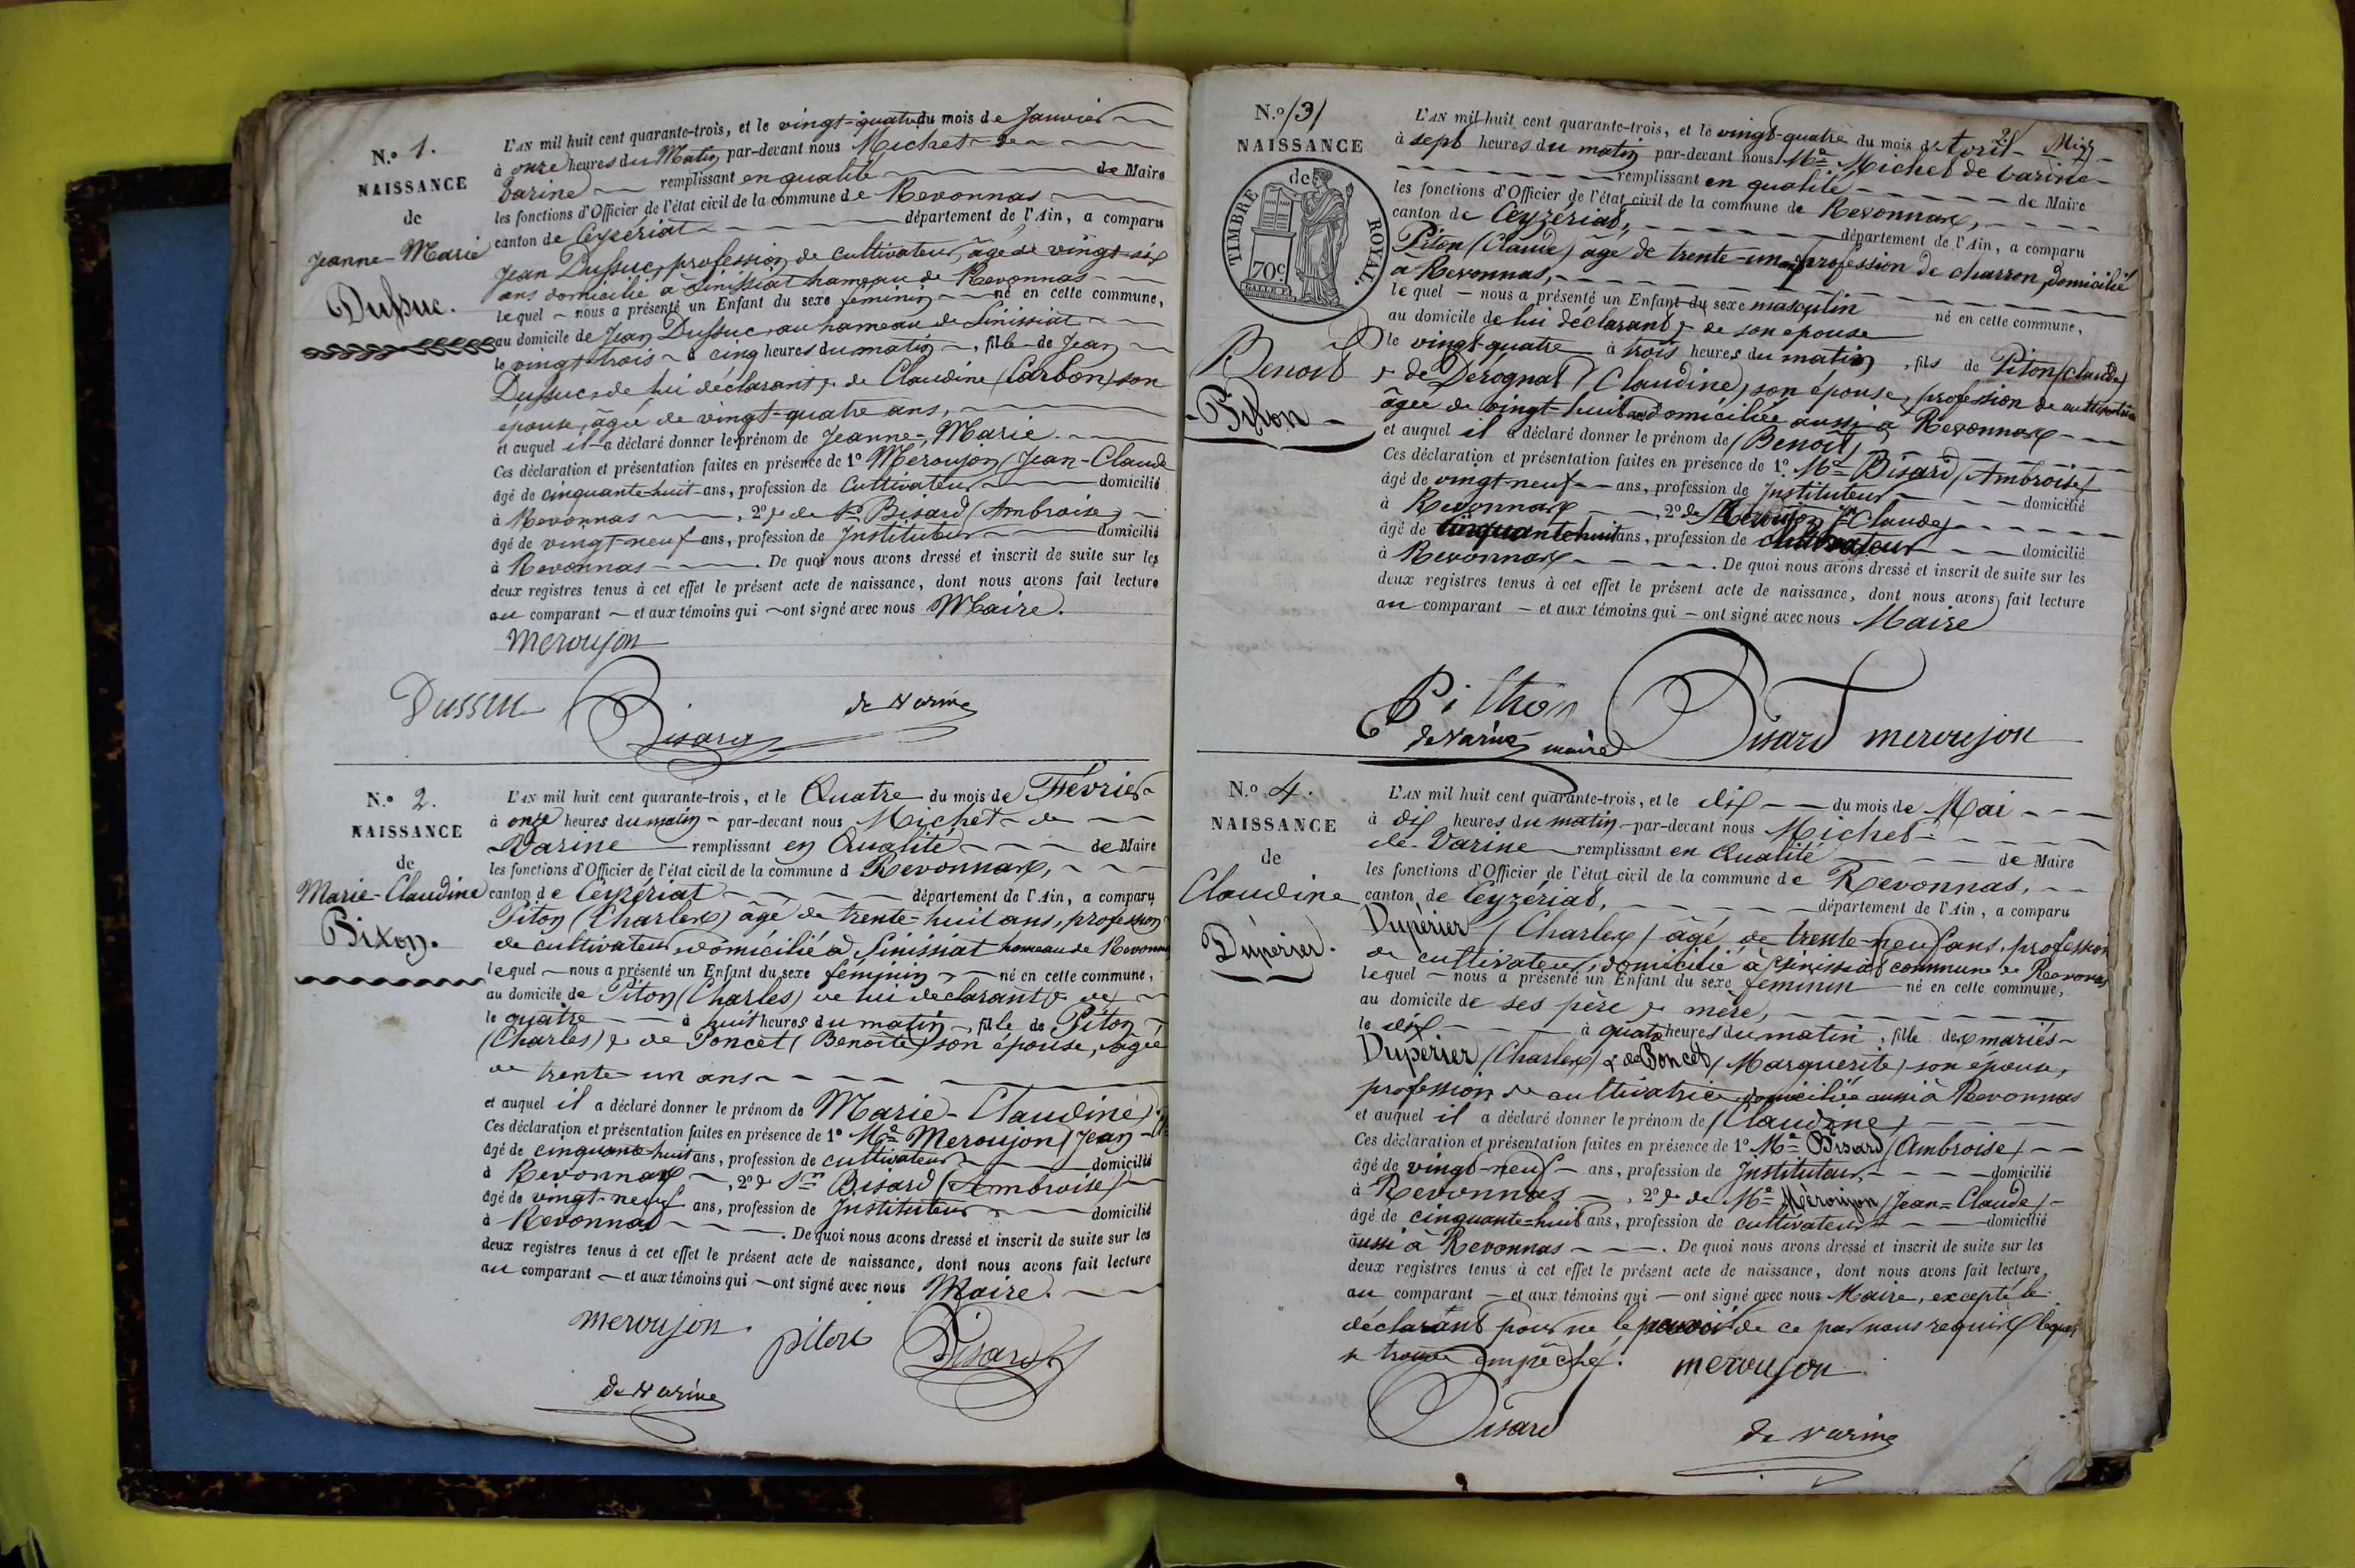 N.º 1.
NAISSANCE
de
Jeanne-Marie
Dussuc.
L'AN mil huit cent quarante-trois, et le vingt-quatre du mois de Janvier
à onze heures du Matin par-devant nous Michet de
Varine remplissant en qualité de Maire
les fonctions d'Officier de l'état civil de la commune de Revonnas
canton de Ceyzériat département de l'Ain, a comparu
Jean Dussuc, profession de cultivateur, âgé de vingt-six
ans domicilié à Sinissiat hameau de Revonnas
lequel nous a présenté un Enfant du sexe féminin né en cette commune,
au domicile de Jean Dussuc, au hameau de Sinissiat
le vingt-trois à cinq heures du matin, fille de Jean
Dussuc, de lui déclarant, & de Claudine (Carbon) son
épouse, âgée de vingt-quatre ans,
et auquel il a déclaré donner le prénom de Jeanne-Marie.
Ces déclaration et présentation faites en présence de 1º Meroujon (Jean-Claude
âgé de cinquante-huit ans, profession de Cultivateur domicilié
à Revonnas, 2º & de Sr Bisard (Ambroise)
âgé de vingt-neuf ans, profession de Instituteur domicilié
à Revonnas. De quoi nous avons dressé et inscrit de suite sur les
deux registres tenus à cet effet le présent acte de naissance, dont nous avons fait lecture
au comparant et aux témoins qui ont signé avec nous Maire.
Meroujon
Dussuc Bisard de Varine
N.º 2.
NAISSANCE
de
Marie-Claudine
Piton.
L'AN mil huit cent quarante-trois, et le Quatre du mois de Février
à onze heures du matin par-devant nous Michet de
Varine remplissant en Qualité de Maire
les fonctions d'Officier de l'état civil de la commune d Revonnas,
canton de Ceyzériat département de l'Ain, a comparu
Piton (Charles) âgé de trente-huit ans, profession
de cultivateur, domicilié à Sinissiat hameau de Revonnas
lequel nous a présenté un Enfant du sexe féminin, né en cette commune,
au domicile de Piton (Charles) de lui déclarant & de
le quatre à huit heures du matin, fille de Piton
(Charles) & de Poncet (Benoîte) son épouse, âgée
de trente-un ans
et auquel il a déclaré donner le prénom de Marie-Claudine)
Ces déclaration et présentation faites en présence de 1º Me Meroujon (Jean-Cl
âgé de cinquante-huit ans, profession de cultivateur domicilié
à Revonnas, 2º & Sr Bisard (Ambroise)
âgé de vingt-neuf ans, profession de Instituteur domicilié
à Revonnas. De quoi nous avons dressé et inscrit de suite sur les
deux registres tenus à cet effet le présent acte de naissance, dont nous avons fait lecture
au comparant et aux témoins qui ont signé avec nous Maire.
meroujon. piton Bisard
de Varine
N.º 3
NAISSANCE
de
TIMBRE ROYAL.
70c
Benoit
Piton
L'AN mil huit cent quarante-trois, et le vingt-quatre du mois d'Avril
à sept heures du matin par-devant nous Me Michet de Varine
remplissant en qualité de Maire
les fonctions d'Officier de l'état civil de la commune de Revonnas,
canton de Ceyzériat, département de l'Ain, a comparu
Piton (Claude) âgé de trente-un ans, profession de charron, domicilié
à Revonnas,
lequel nous a présenté un Enfant du sexe masculin né en cette commune,
au domicile de lui déclarant, & de son épouse
le vingt-quatre à trois heures du matin, fils de Piton (Claude)
& de Dérognat (Claudine), son épouse, profession de cultivatrice
âgée de vingt-huit ans domiciliée aussi à Revonnas
et auquel il a déclaré donner le prénom de (Benoit)
Ces déclaration et présentation faites en présence de 1º Me Bisard (Ambroise)
âgé de vingt-neuf ans, profession de Instituteur domicilié
à Revonnas, 2º de Meroujon Jn Claude)
âgé de cinquante huit ans, profession de cultivateur domicilié
à Revonnas. De quoi nous avons dressé et inscrit de suite sur les
deux registres tenus à cet effet le présent acte de naissance, dont nous avons fait lecture
au comparant et aux témoins qui ont signé avec nous Maire
Pithon Bisard meroujon
de Varine maire
N.º 4.
NAISSANCE
de
Claudine
Dupérier.
L'AN mil huit cent quarante-trois, et le dix du mois de Mai
à dix heures du matin par-devant nous Michet
de Varine remplissant en Qualité de Maire
les fonctions d'Officier de l'état civil de la commune de Revonnas,
canton de Ceyzériat, département de l'Ain, a comparu
Dupérier (Charles) âgé de trente-neuf ans, profession
de cultivateur, domicilié à Sinissiat commune de Revonnas
lequel nous a présenté un Enfant du sexe féminin né en cette commune,
au domicile de ses père & mère,
le dix à quatre heures du matin, fille des mariés
Dupérier (Charles) & de Poncet (Marguerite) son épouse,
profession de cultivatrice domiciliée aussi à Revonnas
et auquel il a déclaré donner le prénom de (Claudine)
Ces déclaration et présentation faites en présence de 1º Me Bisard (Ambroise)
âgé de vingt-neuf ans, profession de Instituteur domicilié
à Revonnas, 2º & de Me Méroujon (Jean-Claude)
âgé de cinquante-huit ans, profession de cultivateur domicilié
aussi à Revonnas. De quoi nous avons dressé et inscrit de suite sur les
deux registres tenus à cet effet le présent acte de naissance, dont nous avons fait lecture,
au comparant et aux témoins qui ont signé avec nous Maire, excepté le
déclarant pour ne le pouvoir de ce par nous requis lequel
se trouve empêché. meroujon
Bisard de Varine